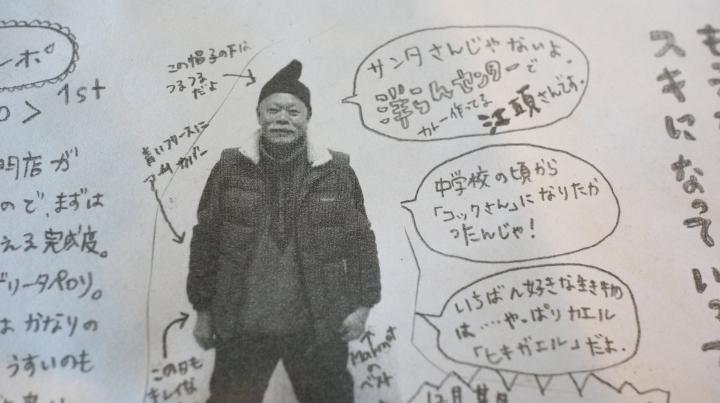 ーポ
1st
明店が
ので、まずは
える完成度。
ドリータペロリ。
は かなりの
うすいのも
この帽子の下は
つるつる
だよ
青いフリースに
アームカバー
この日も
キレイな
Marmot
の
ベスト
サンタさんじゃないよ。
らんセンターで
カレー作ってる
江頭さんです。
中学校の頃から
「コックさん」になりたか
ったんじゃ！
いちばん好きな生き物
は……やっぱりカエル
「ヒキガエル」だよ。
12月 某日
スキになって